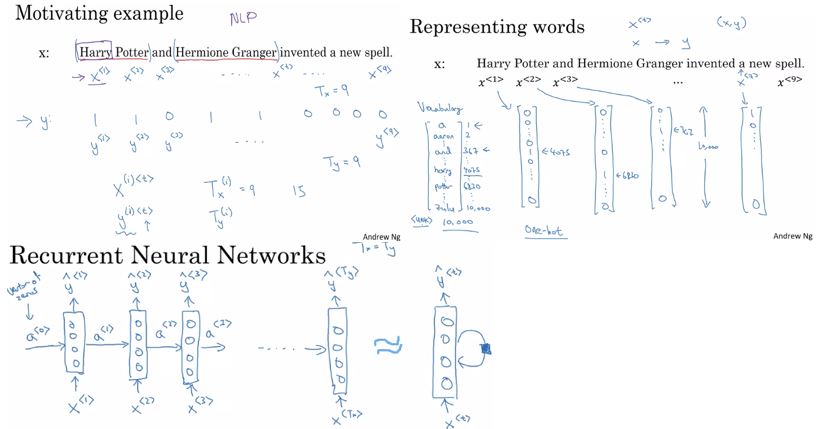 Motivating example
NLP
x: Harry Potter and Hermione Granger invented a new spell.
→ x<1> x<2> x<3> .... x<t> .... x<9>
Tx = 9
→ y: 1 1 0 1 1 0 0 0 0
y<1> y<2> y<3> .... y<9>
Ty = 9
X(i)<t> Tx(i) = 9 15
y(i)<t> Ty(i)
Andrew Ng
Representing words
x<t> (x,y)
x → y
x: Harry Potter and Hermione Granger invented a new spell.
x<1> x<2> x<3> ... x<7> x<9>
Vocabulary
a 1 ←
aaron 2
⋮
and 367 ←
⋮
harry 4075
⋮
potter 6830
⋮
zulu 10,000
<UNK> 10,000
0 0 ⋮ 0 1 0 ⋮ 0 ← 4075
0 ⋮ 0 ⋮ 1 ⋮ 0 ← 6830
0 ⋮ 1 ⋮ 0 ← 367
10,000
1 0 ⋮ 0
One-hot
Andrew Ng
Recurrent Neural Networks
Tx = Ty
vector of zeros
ŷ<1> ŷ<2> ŷ<3> ŷ<Ty> ŷ<t>
a<0> a<1> a<2> a<3> ...... → ≈
x<1> x<2> x<3> x<Tx> x<t>